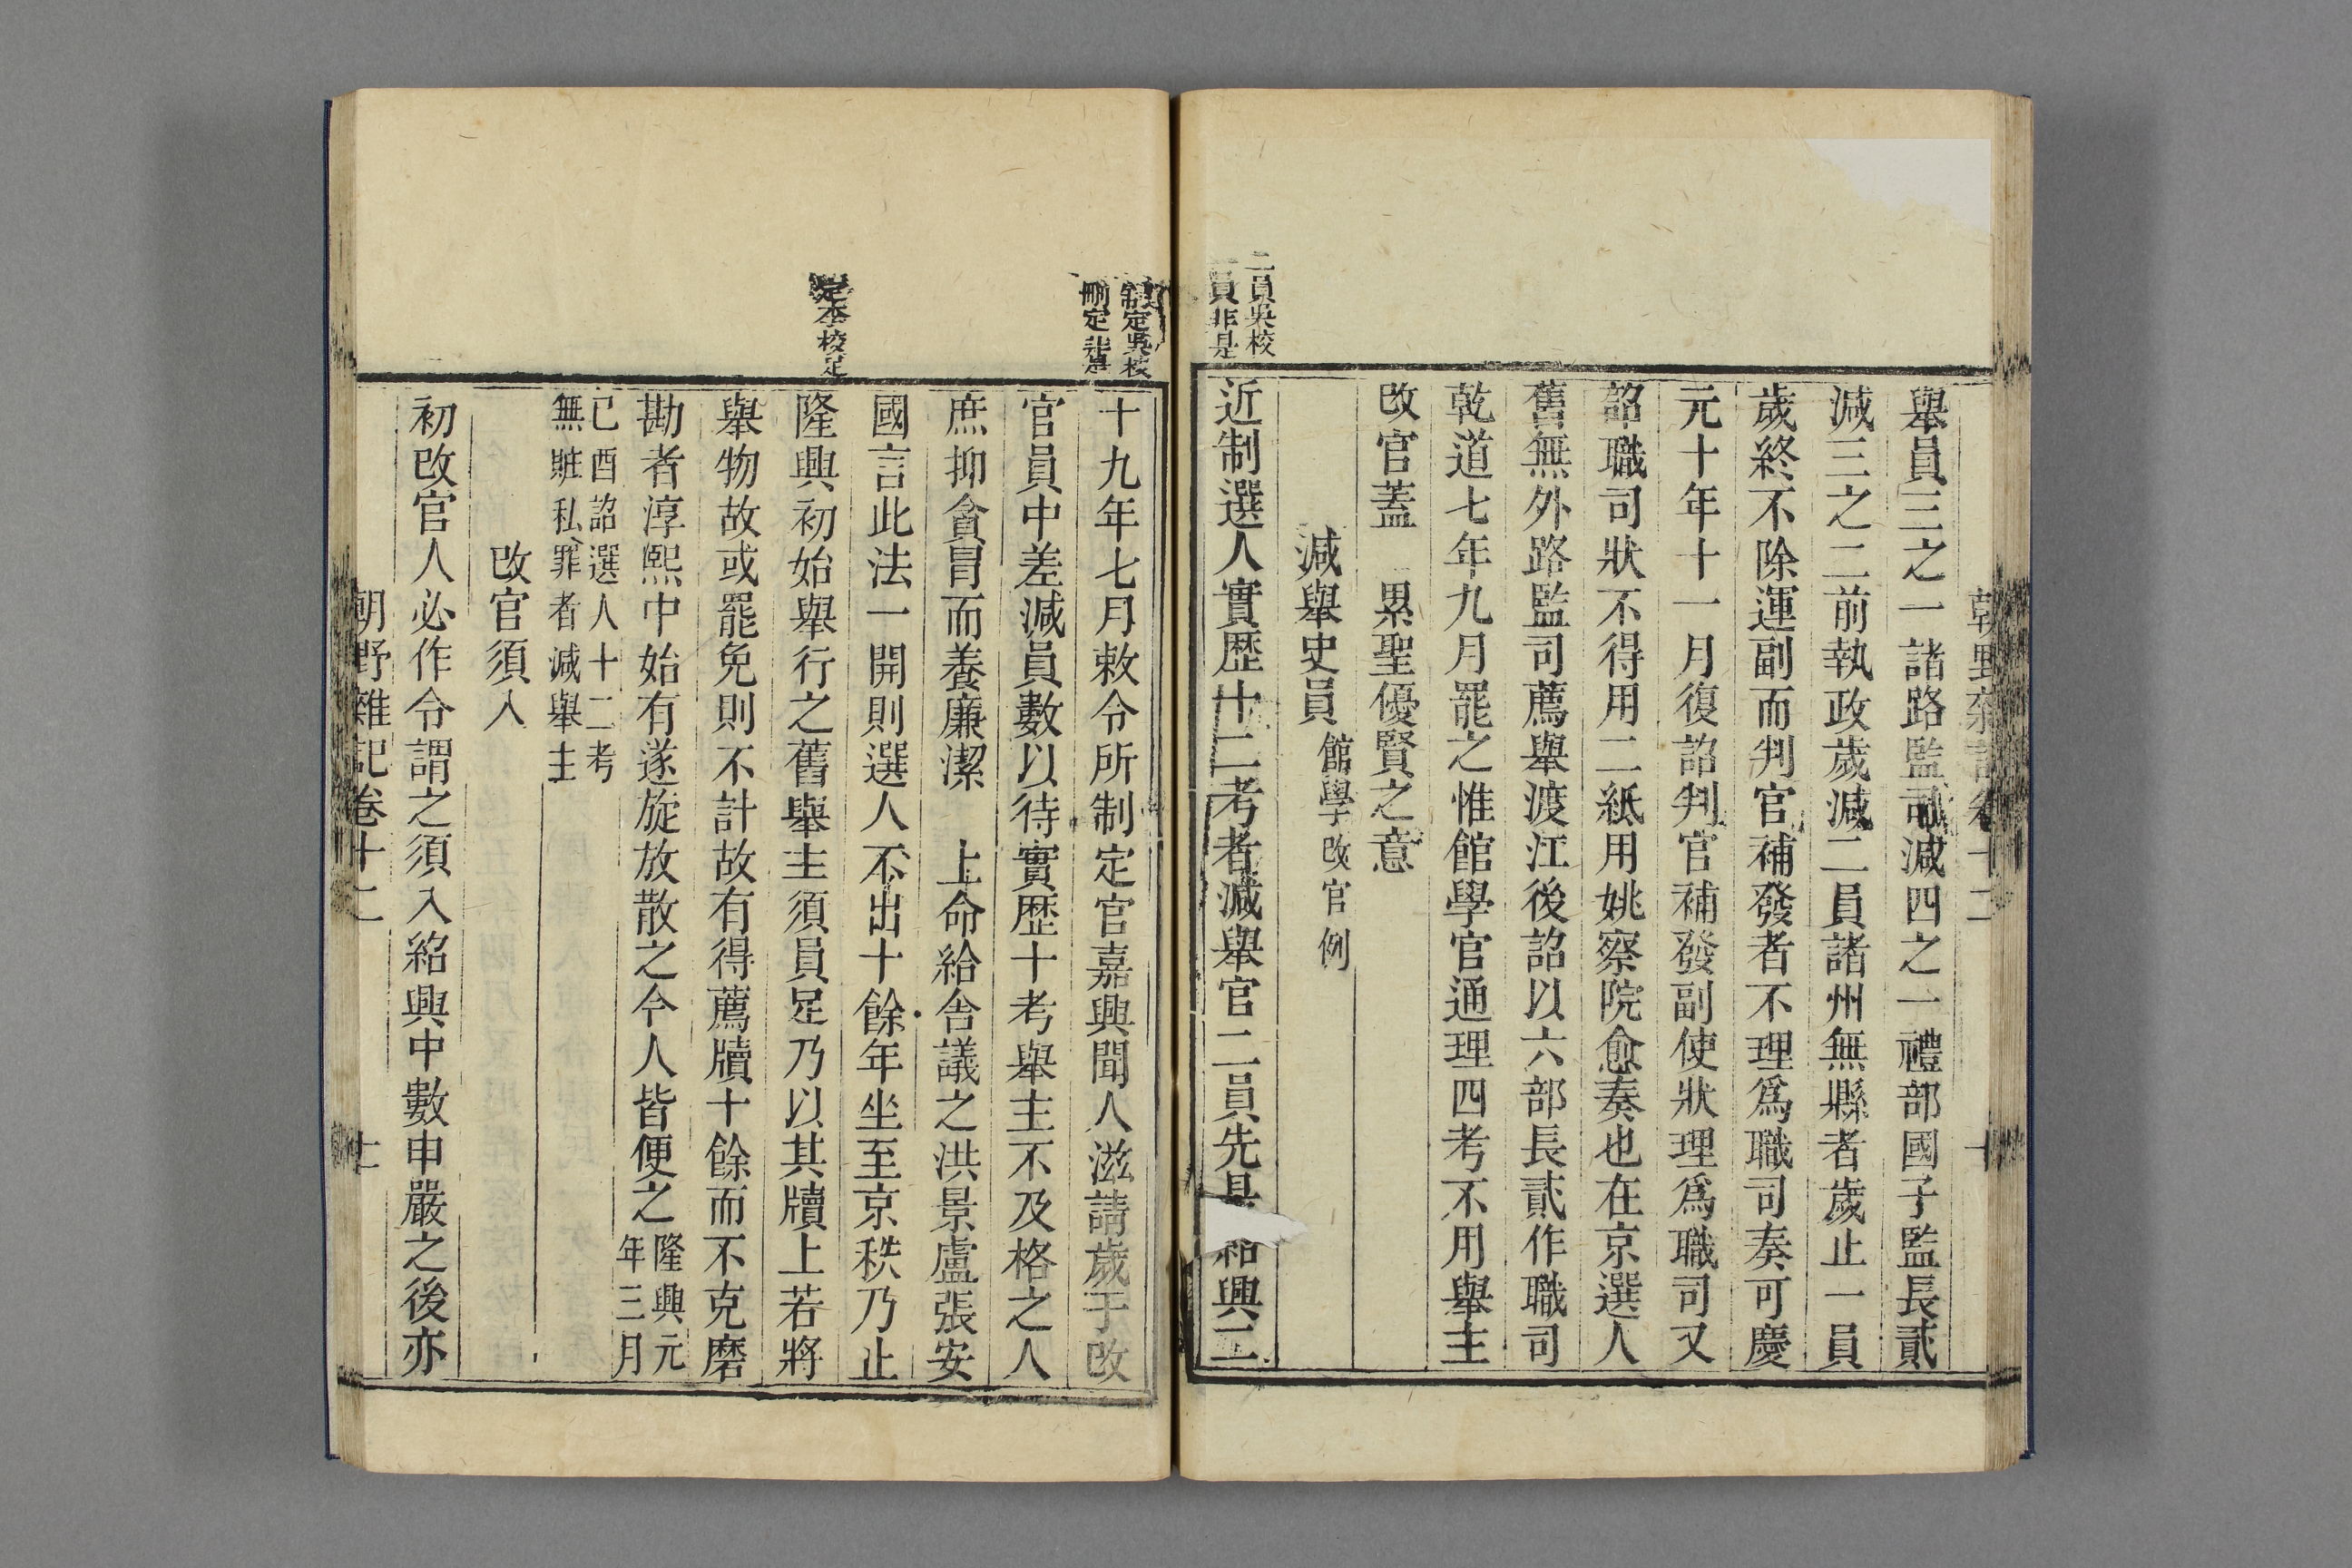 朝野雜記卷十二 十
舉員三之一諸路監司減四之一禮部國子監長貳
減三之二前執政歲減二員諸州無縣者歲止一員
歲終不除運副而判官補發者不理爲職司奏可慶
元十年十一月復詔判官補發副使狀理爲職司又
詔職司狀不得用二紙用姚察院愈奏也在京選人
舊無外路監司薦舉渡江後詔以六部長貳作職司
乾道七年九月罷之惟館學官通理四考不用舉主
改官蓋 累聖優賢之意
減舉史員 館學改官例
二員吳校
一員非是
近制選人實歷十二考者減舉官二員先是紹興二
制定吳校
刪定非是
十九年七月敕令所制定官嘉興聞人滋請歲于改
官員中差減員數以待實歷十考舉主不及格之人
庶抑貪冒而養廉潔 上命給舍議之洪景盧張安
國言此法一開則選人不出十餘年坐至京秩乃止
定李校足
隆興初始舉行之舊舉主須員足乃以其牘上若將
舉物故或罷免則不計故有得薦牘十餘而不克磨
勘者淳熙中始有逐旋放散之令人皆便之 隆興元
年三月
己酉詔選人十二考
無贓私罪者減舉主
改官須入
初改官人必作令謂之須入紹興中數申嚴之後亦
朝野雜記卷十二 十一